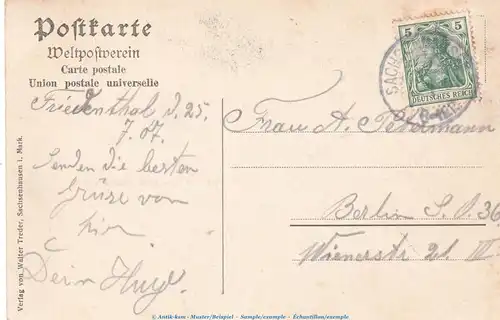 Postkarte
Weltpostverein
Carte postale
Union postale universelle
Friedenthal d. 25.
7. 07.
Senden die besten
Grüße von
hier
Dein Hugo
Verlag von Walter Treder, Sachsenhausen i. Mark.
5 5
DEUTSCHES REICH
SACHS
Frau A. Petermann
Berlin S. O. 36
Wienerstr 21. IV
© Antik-kam - Muster/Beispiel - Sample/exemple - Échantillon/exemple